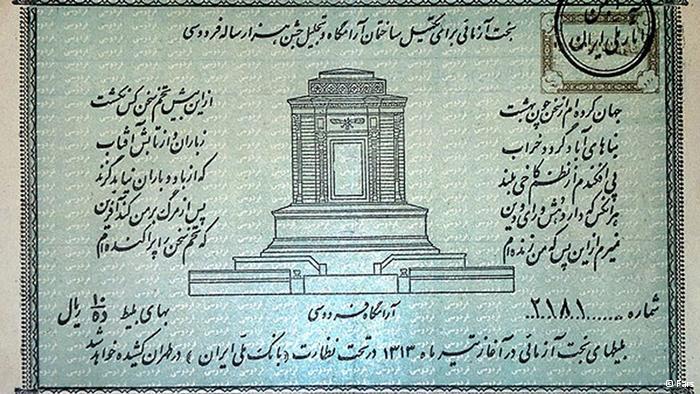 بخت آزمائی برای تکمیل ساختمان آرامگاه و تجلیل جشن هزار ساله فردوسی
آثار ملی ایران
جهان کرده ام از سخن چون بهشت از این بیش تخم سخن کس نکشت
بناهای آباد گردد خراب ز باران و از تابش آفتاب
پی افکندم از نظم کاخی بلند که از باد و باران نیابد گزند
هر آنکس که دارد هش و رای و دین پس از مرگ بر من کند آفرین
نمیرم از این پس که من زنده ام که تخم سخن را پراکنده ام
آرامگاه فردوسی
شماره ......۲۱۸۱..
بهای بلیط ۱۰ ده ریال
بلیطهای بخت آزمائی در آغاز تیر ماه ۱۳۱۳ در تحت نظارت (بانک ملی ایران) در طهران کشیده خواهد شد
© Fars